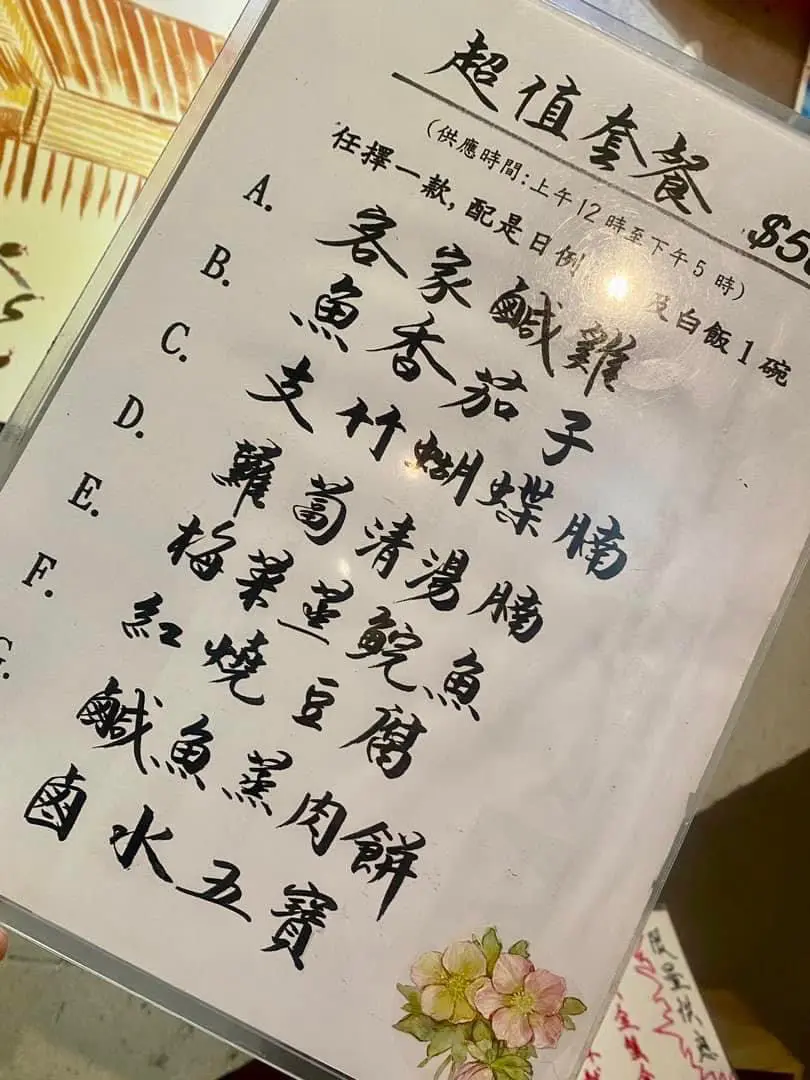 超值套餐 $5
(供應時間:上午12時至下午5時)
任擇一款,配是日例 及白飯1碗
A. 客家鹹雞
B. 魚香茄子
C. 支竹蝴蝶腩
D. 蘿蔔清湯腩
E. 梅菜蒸鯇魚
F. 紅燒豆腐
G. 鹹魚蒸肉餅
鹵水五寶
限量供應